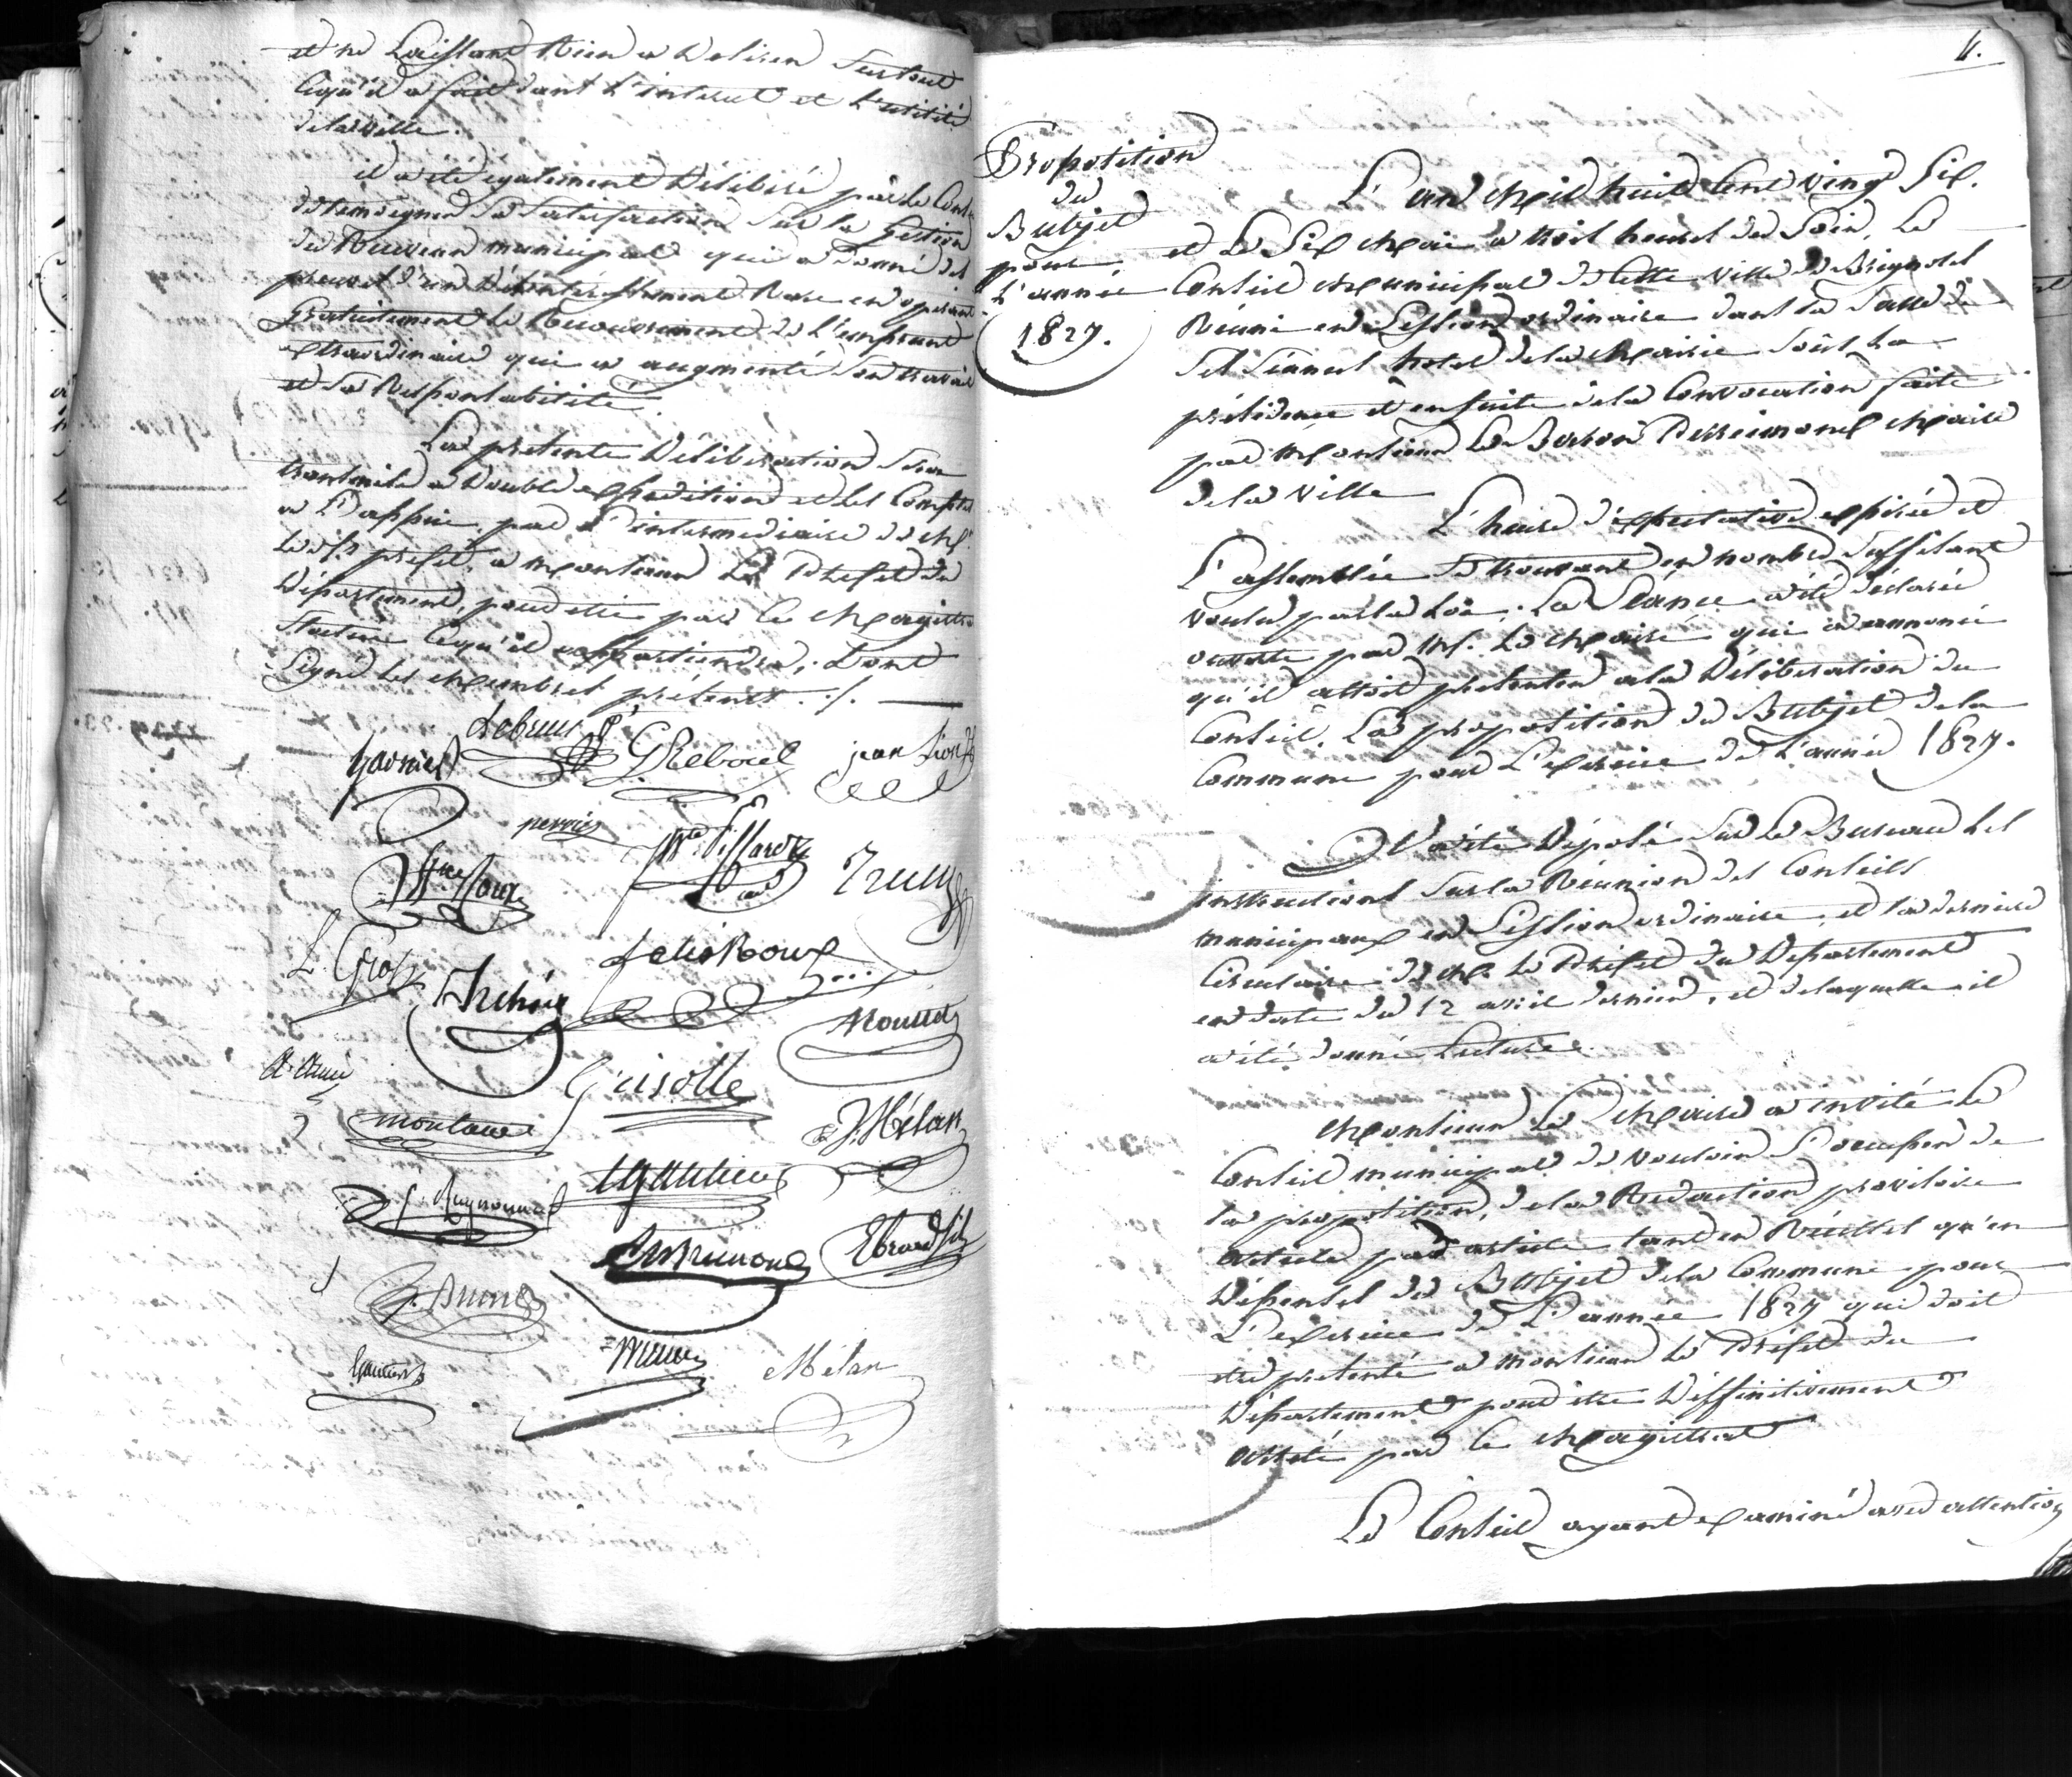 et ne Laissant Rien a Desirer Surtout
Cequ'il a fait dant L'interest et L'utilité
delaville.
il a été également Délibéré par le Cons.
de temoigner Sa Satisfaction Sur la Gestion
du Receveur municipal qui a donné des
preuves d'un Désintéressement Rare en opérant
Gratuitement le Recouvrement de L'emprunt
extraordinaire qui a augmenté Son travail
et Sa Responsabilité.
La presente Délibération Sera
transmise a Double expedition et les Comptes
a L'appui, par L'intermediaire de Mr.
le Sr. prefet, a Monsieur Le Préfet du
Département, pour etre par ce Magistrat
Statué Cequ'il appartiendra, Dont
Signé les Membres présents ./.
Lebrun
Garnier G Reboul jean Lion
perrier
Roux
L. Gros Felix Roux
Guisolle
J. Mélan
Gautier
Brunet Ebrard fils
Gautier Mélan
4.
Proposition
du
Budjet
pour
L'année
1827.
L'an Mil huit Cent Vingt Six.
et Le Six Mai a trois heures de Soir, Le
Conseil Municipal de Cette Ville de Brignoles
Réuni en Session ordinaire dans la Salle de
Ses Séances hotel dela Mairie Sous La
présidence et ensuite dela Convocation faite
par Monsieur Le Baron Perreimond Maire
de la Ville
L'heure d'expectative expirée et
L'assemblée Se trouvant en nombre Suffisant
Voulu par la Loi; La Séance a été déclarée
ouverte par Mr. Le Maire qui a annoncé
qu'il alloit presenter ala Délibération du
Conseil, La proposition du Budjet dela
Commune pour L'exercice de L'année 1827.
Il a été Déposé Sur Le Bureau Les
instructions Sur la Réunion des Conseils
municipaux en Session ordinaire, et la derniere
Circulaire de Mr. Le Préfet du Département
en date du 12 avril dernier, et delaquelle il
a été donné Lecture.
Monsieur Le Maire a invité Le
Conseil municipal de vouloir S'occuper de
la proposition, dela Redaction provisoire
article par article tant en Récettes qu'en
Dépenses du Budjet dela Commune pour
L'exercice de L'année 1827 qui doit
etre presenté a Monsieur Le Préfet du
Département pour etre Déffinitivement
arreté par ce Magistrat
Le Conseil ayant examiné avec attention